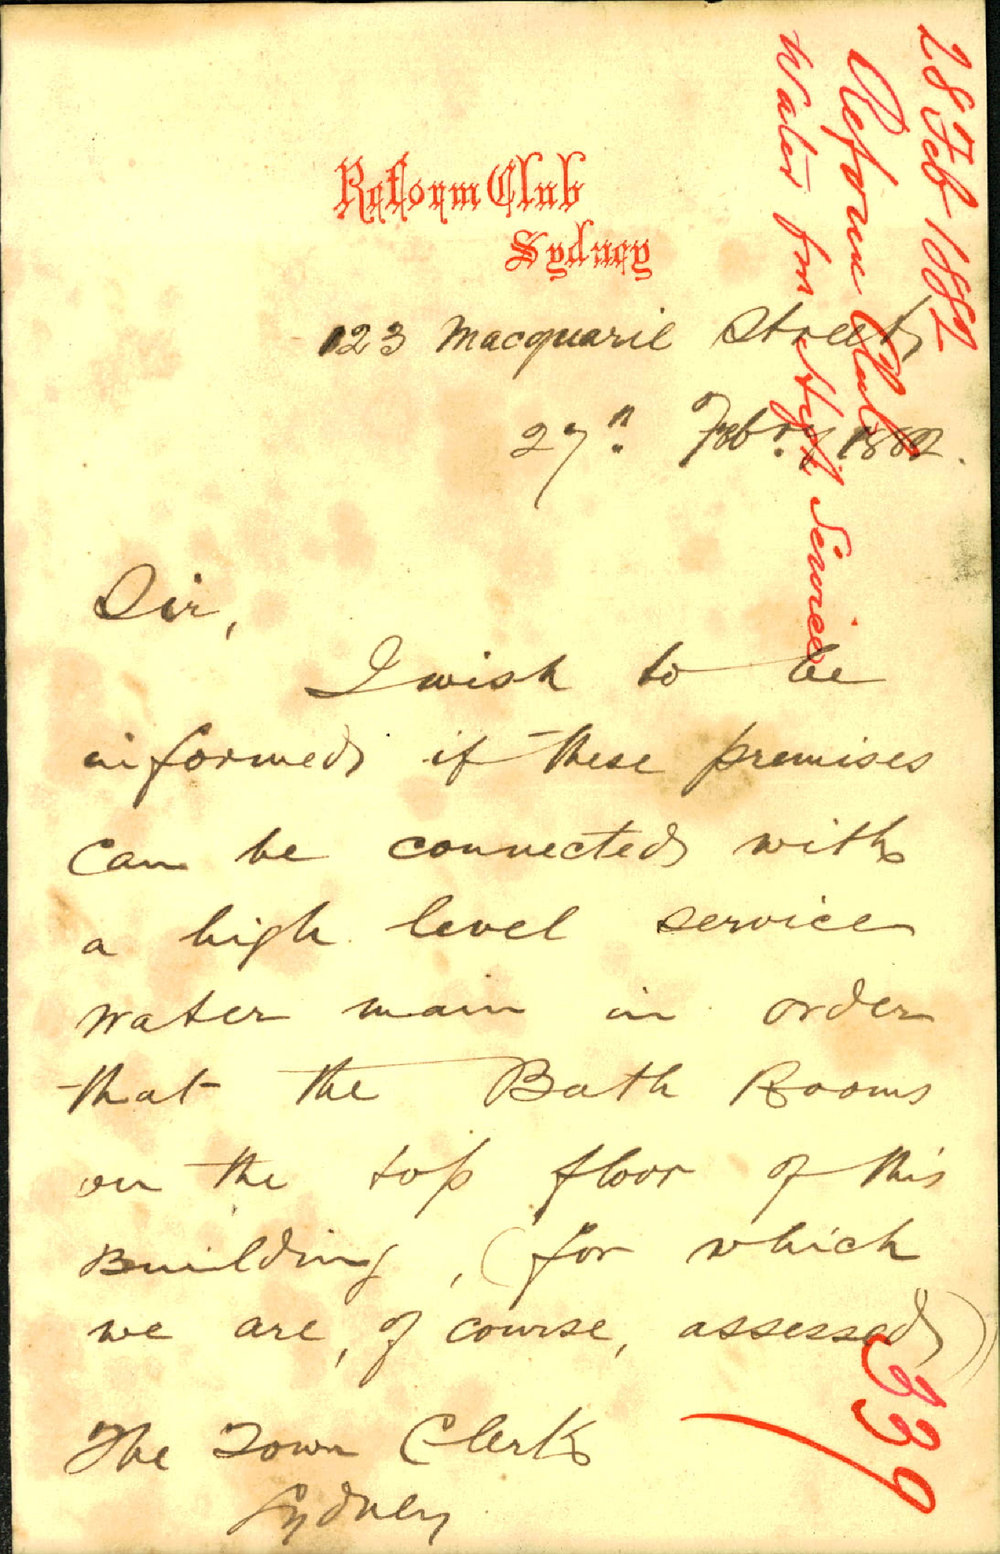 28 Feb 1882
Reform Club
Water from High Service
Reform Club
Sydney
123 Macquarie Street,
27th Febry 1882.
Sir,
I wish to be
informed if these premises
can be connected with
a high level service
water main in order
that the Bath Rooms
on the top floor of this
Building, (for which
we are, of course, assessed)
339
The Town Clerk
Sydney